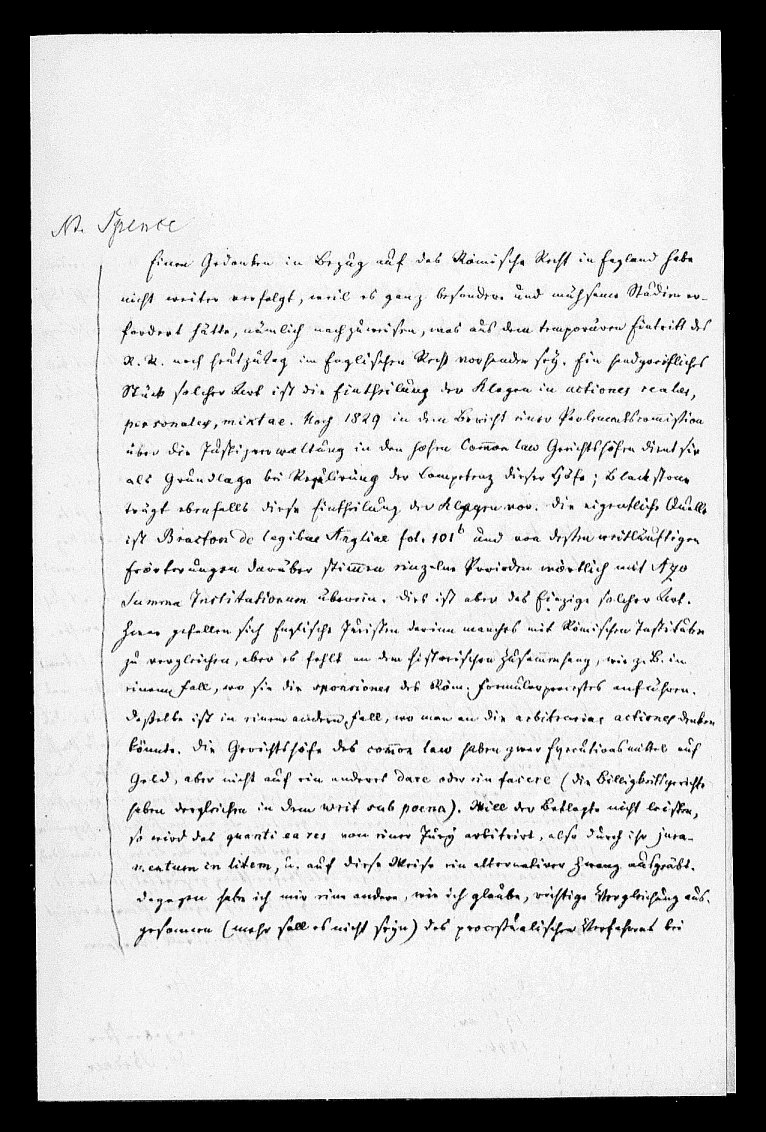 Nt. Spence
Einen Gedanken in Bezug auf das Römische Recht in England habe
nicht weiter verfolgt, weil es ganz besondere und mühsame Studien er-
fordert hätte, nämlich nachzuweisen, was aus dem temporären Eintritt des
R. R. noch heutzutag im Englischen Recht vorhanden sey. Ein handgreifliches
Stück solcher Art ist die Eintheilung der Klagen in actiones reales,
personales, mixtae. Noch 1829 in dem Bericht einer Parlamentscomission
über die Justizverwaltung in den hohen Com̄on law Gerichtshöfen dient sie
als Grundlage bei Regulirung der Competenz dieser Höfe; Blackstone
trägt ebenfalls diese Eintheilung der Klagen vor. Die eigentliche Quelle
ist Bracton de legibus Angliae fol. 101b und von dessen weitläuftigen
Erörterungen darüber stim̄en einzelne Perioden wörtlich mit Azo
Summa Institutionum überein. Dies ist aber das Einzige solcher Art.
Zwar gefallen sich Englische Juristen darinn manches mit Römischen Instituten
zu vergleichen, aber es fehlt an dem historischen Zusam̄enhang, wie z. B. in
einem Fall, wo sie die sponsiones des Röm. Formularprocesses anführen.
Dasselbe ist in einem andern Fall, wo man an die arbitrariae actiones denken
könnte. Die Gerichtshöfe des com̄on law haben zwar Executionsmittel auf
Geld, aber nicht auf ein anderes dare oder ein facere (die Billigkeitsgerichte
haben dergleichen in dem writ sub poena). Will der Beklagte nicht leisten,
so wird das quanti ea res von einer Jury arbitrirt, also durch ihr jura-
mentum in litem, u. auf diese Weise ein alternativer Zwang ausgeübt.
Dagegen habe ich mir eine andere, wie ich glaube, richtige Vergleichung aus-
gesonnen (mehr soll es nicht seyn) des processualischen Verfahrens bei